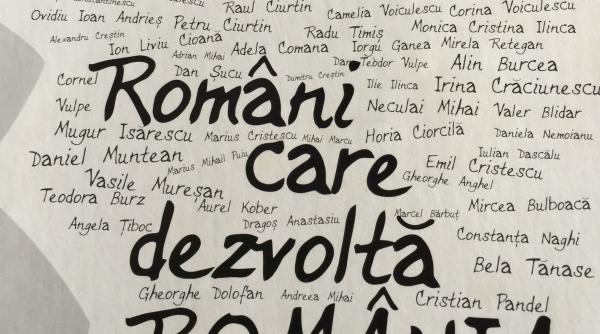 Raul Ciurtin
Camelia Voiculescu
Corina Voiculescu
Ovidiu Ioan Andrieș
Petru Ciurtin
Radu Timiș
Monica Cristina Ilinca
Alexandru Creștin
Ion Liviu Cioană
Adela Comana
Iorgu Ganea
Mirela Retegan
Adrian Mihai
Dan Teodor Vulpe
Alin Burcea
Dan Șucu
Dumitru Creștin
Cornel Vulpe
Români
Ilie Ilinca
Irina Crăciunescu
Neculai Mihai
Valer Blidar
Mugur Isărescu
Marius Cristescu
Mihai Marcu
Horia Ciorcilă
Daniela Nemoianu
Daniel Muntean
Marius Mihail Puiu
care
Emil Cristescu
Iulian Dascălu
Vasile Mureșan
Gheorghe Anghel
Teodora Burz
Aurel Kober
Marcel Bărbuț
Mircea Bulboacă
Angela Țiboc
Dragoș Anastasiu
Constanța Naghi
dezvoltă
Bela Tănase
Gheorghe Dolofan
Andreea Mihai
Cristian Pandel